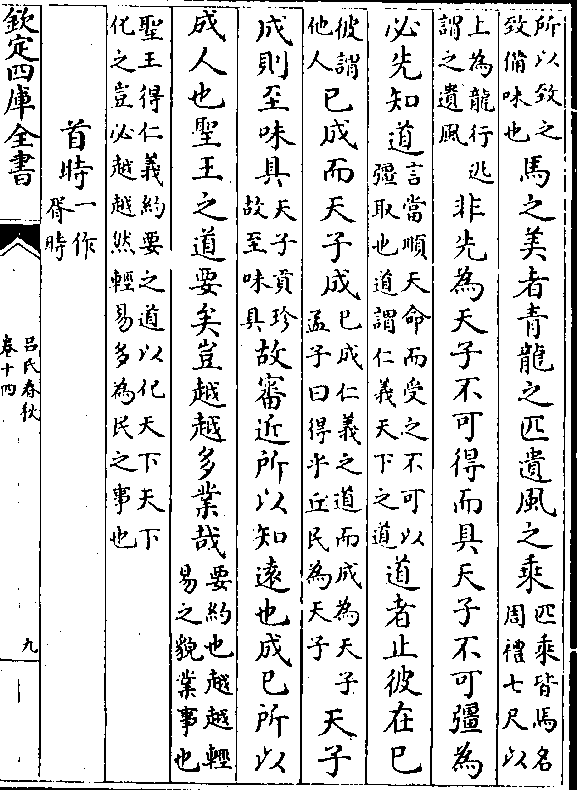 所以致之
致備味也
馬之美者青龍之匹遺風之乘
匹乘皆馬名
周禮七尺以
上為龍行迅
謂之遺風
非先為天子不可得而具天子不可彊為
必先知道
言當順天命而受之不可以
彊取也道謂仁義天下之道
道者止彼在已
彼謂
他人
已成而天子成
已成仁義之道而成為天子
孟子曰得乎丘民為天子
天子
成則至味具
天子貢珍
故至味具
故審近所以知遠也成已所以
成人也聖王之道要矣豈越越多業哉
要約也越越輕
易之貌業事也
聖王得仁義約要之道以化天下天下
化之豈必越越然輕易多為民之事也
首時
一作
胥時
欽定四庫全書
呂氏春秋
卷十四
九